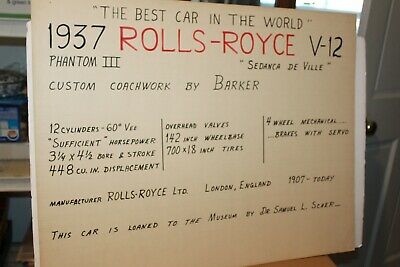 "THE BEST CAR IN THE WORLD"
1937 ROLLS-ROYCE V-12
PHANTOM III "SEDANCA DE VILLE"
CUSTOM COACHWORK BY BARKER
12 CYLINDERS - 60° VEE
"SUFFICIENT" HORSEPOWER
3¼ x 4½ BORE & STROKE
448 CU. IN. DISPLACEMENT
OVERHEAD VALVES
142 INCH WHEELBASE
700 x 18 INCH TIRES
4 WHEEL MECHANICAL ....
....BRAKES WITH SERVO
MANUFACTURER ROLLS-ROYCE LTD. LONDON, ENGLAND 1907-TODAY
THIS CAR IS LOANED TO THE MUSEUM BY DR SAMUEL L. SCHER